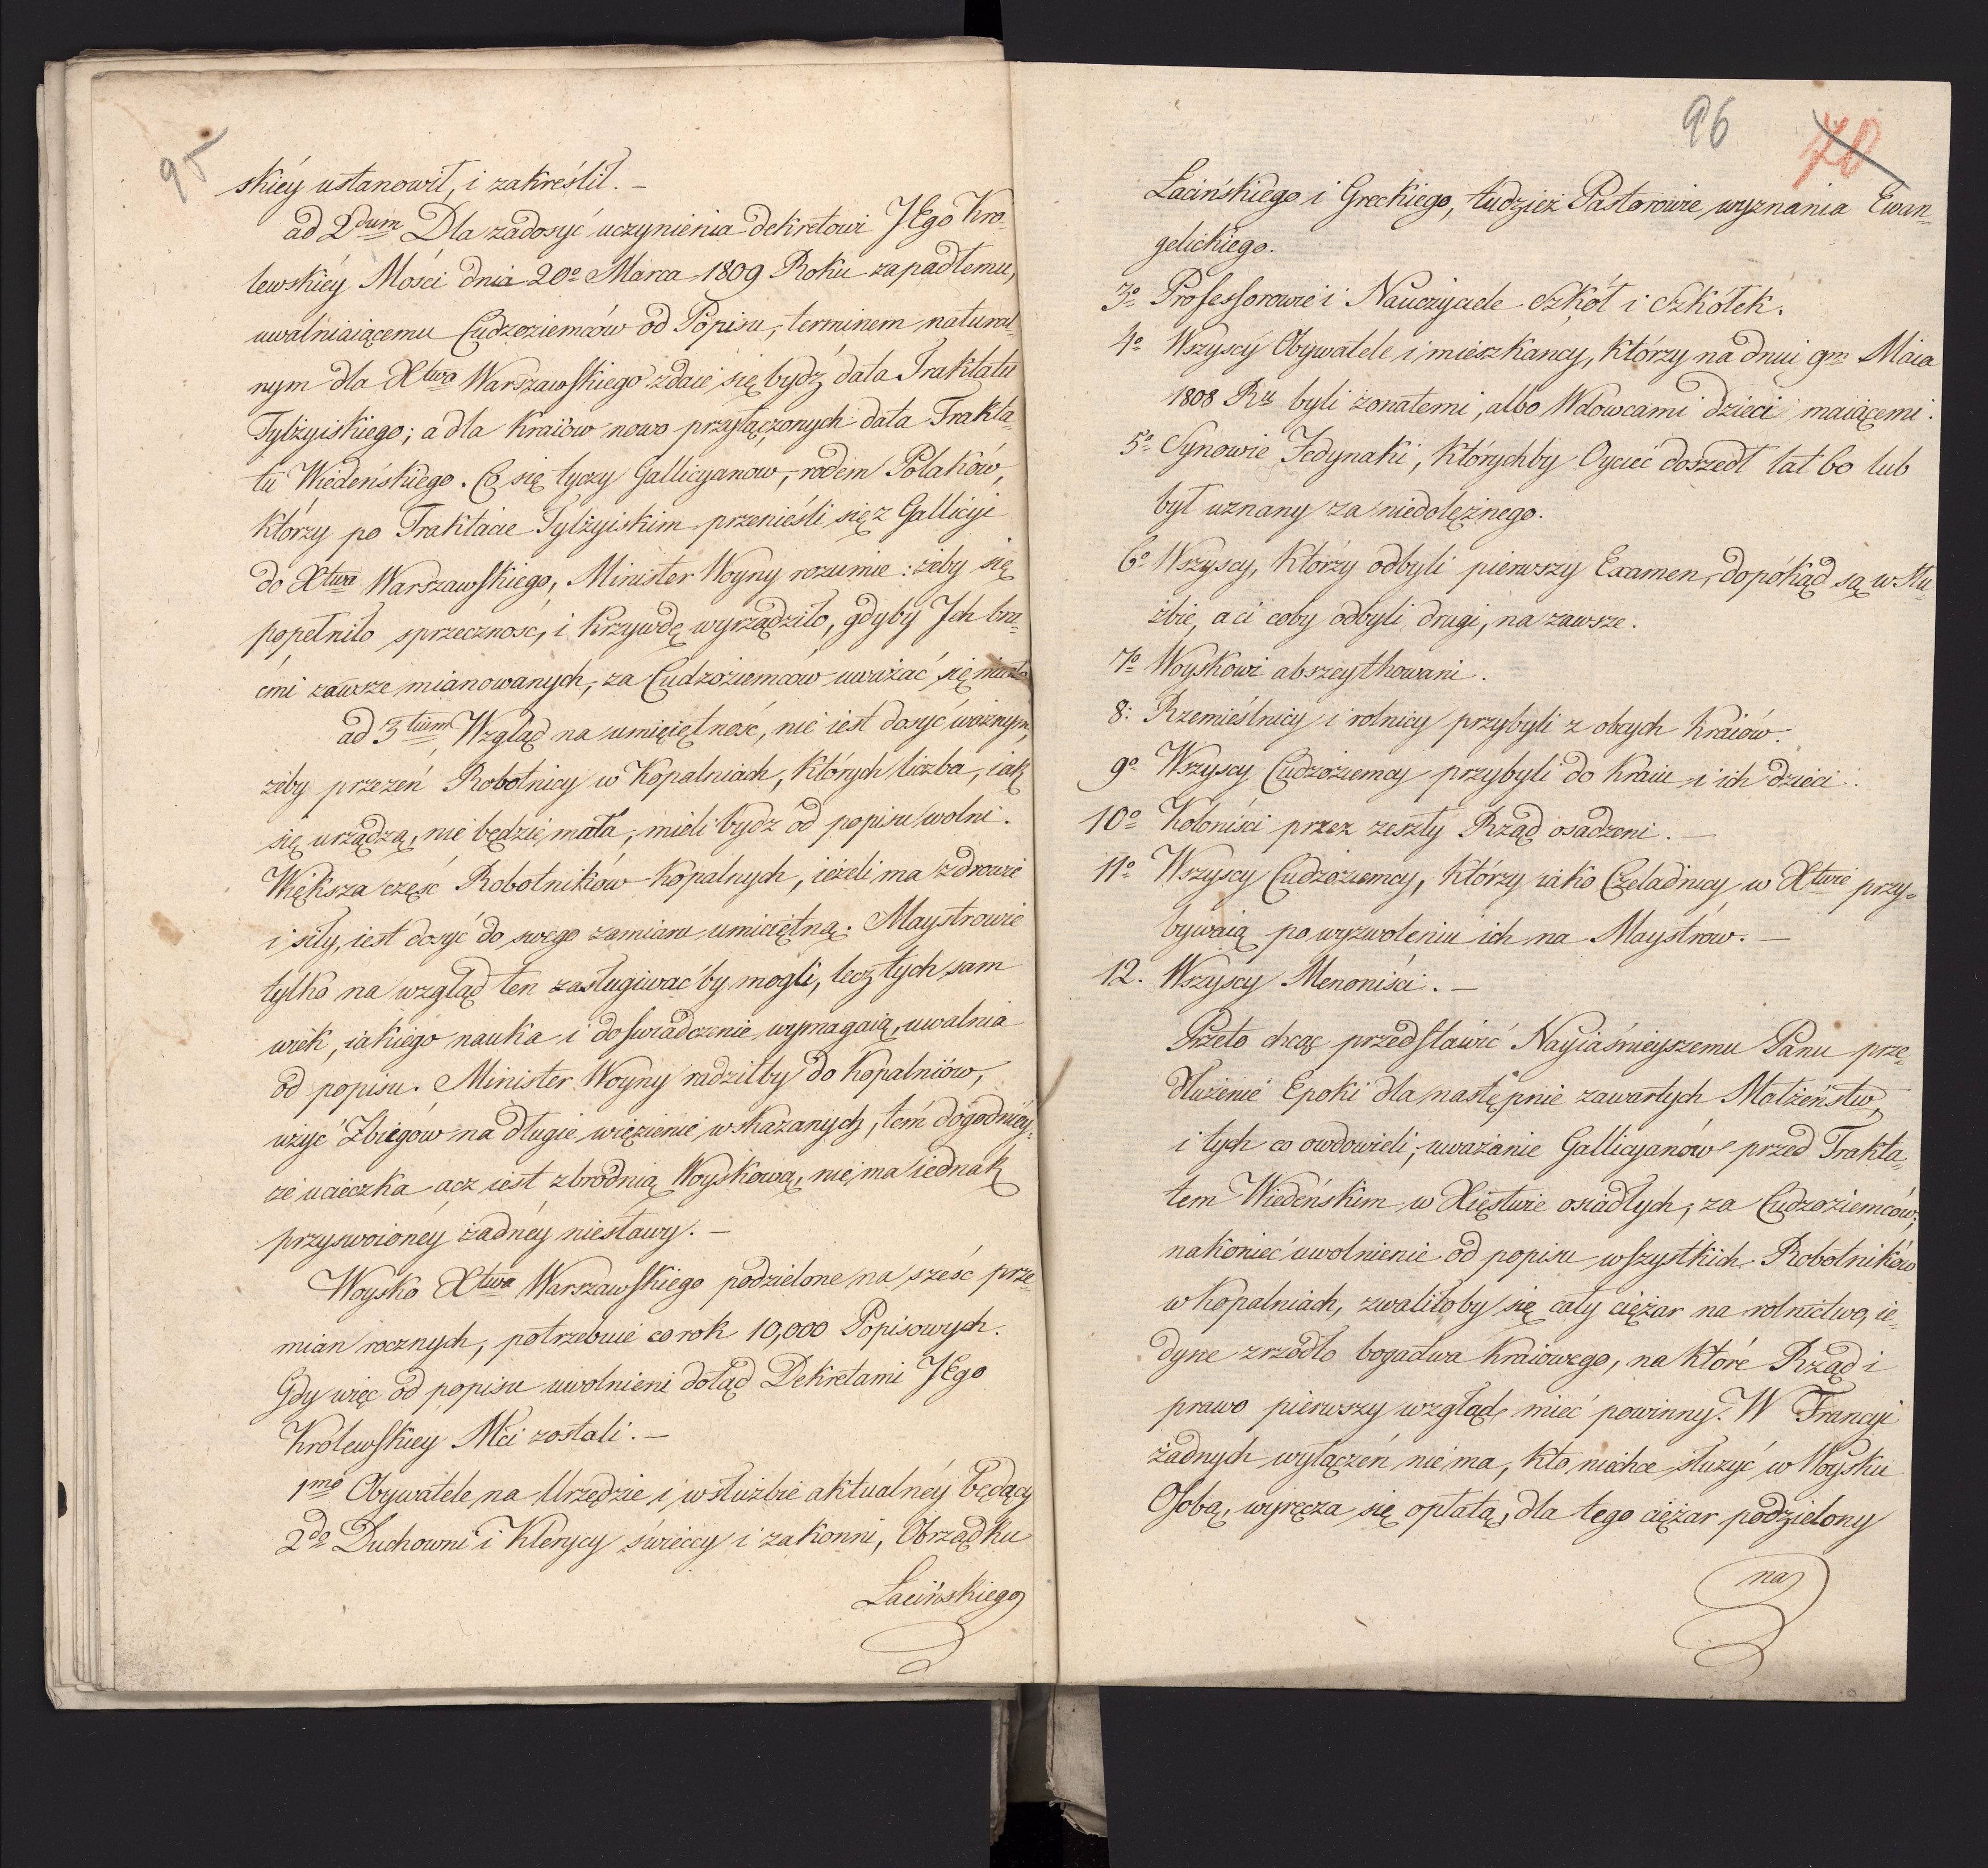 95
skiéy ustanowił, i zakreślił. –
ad 2dum Dla zadosyć uczynienia dekretowi JEgo Kró-
lewskiéy Mości dnia 20o Marca 1809 Roku zapadłemu,
uwalniaiącemu Cudzoziemców od Popisu, terminem natural-
nym dla Xtwa Warszawskiego zdaie się bydź data Traktatu
Tylżyiskiego; a dla Kraiów nowo przyłączonych data Trakta-
tu Wiedeńskiego. Co się tyczy Gallicyanow, rodem Polaków,
którzy po Traktacie Tylżyiskim przenieśli się z Gallicyi
do Xtwa Warszawskiego, Minister Woyny rozumie: żeby się
popełniło sprzeczność, i krzywdę wyrządziło, gdyby Ich bra-
ćmi zawsze mianowanych, za Cudzoziemców uważać się miało
ad 3tium Wzgląd na umięiętność, nie iest dosyć ważnym,
żeby przezeń Robotnicy w Kopalniach, których liczba, iak
się urządzą, nie będzie mała, mieli bydź od popisu wolni.
Większa część Robotników kopalnych, ieżeli ma zdrowie
i siły, iest dosyć do swego zamiaru umieiętną. Maystrowie
tylko na wzgląd ten zasługiwać by mogli, lecz tych sam
wiek, iakiego nauka i doświadczenie wymagaią, uwalnia
od popisu. Minister Woyny radziłby do Kopalniów,
użyć Zbiegów na długie więzienie wskazanych, tém dogodniéy
że ucieczka acz iest zbrodnią Woyskową, nie ma iednak
przyswoionéy żadnéy niesławy. –
Woysko Xtwa Warszawskiego podzielone na sześć prze-
mian rocznych, potrzebuie co rok 10,000 Popisowych.
Gdy więc od popisu uwolnieni dotąd Dekretami JEgo
Królewskiey Mci zostali. –
1mo Obywatele na Urzędzie i w służbie aktualnéy będący
2do Duchowni i Klerycy świeccy i zakonni, Obrządku
Łacińskiego
96
70
Łacińskiego i Greckiego, tudzież Pastorowie wyznania Ewan-
gelickiego.
3o Professorowie i Nauczyciele Szkół i Szkółek.
4o Wszyscy Obywatele i mieszkańcy, którzy na dniu 9m Maia
1808 Ru byli żonatemi, albo Wdowcami dzieci maiącemi.
5o Synowie Jedynaki, którychby Oyciec doszedł lat 60 lub
był uznany za niedołężnego.
6o Wszyscy, którzy odbyli pierwszy Examen, dopókąd są w Słu-
żbie, a ci coby odbyli drugi, na zawsze.
7o Woyskowi abszeythowani.
8: Rzemieślnicy i rolnicy przybyli z obcych Kraiów.
9o Wszyscy Cudzoziemcy przybyli do kraiu i ich dzieci.
10o Koloniści przez zeszły Rząd osadzeni. –
11o Wszyscy Cudzoziemcy, którzy iako Czeladnicy w Xtwie przy-
bywaią po wyzwoleniu ich na Maystrów. –
12. Wszyscy Menoniści. –
Przeto chcąc przedstawić Nayiaśnieyszemu Panu prze-
dłużenie Epoki dla następnie zawartych Małżeństw,
i tych co owdowieli; uważanie Gallicyanów przed Trakta-
tem Wiedeńskim w Xięstwie osiadłych, za Cudzoziemców;
nakoniec uwolnienie od popisu wszystkich Robotników
w kopalniach, zwaliłoby się cały ciężar na rolnictwo, ie-
dyne zrzódło bogactwa kraiowego, na które Rząd i
prawo pierwszy wzgląd mieć powinny. W Francyi
żadnych wyłączeń nie ma, kto niechce służyć w Woysku
Osobą, wyręcza się opłatą, dla tego ciężar podzielony
na